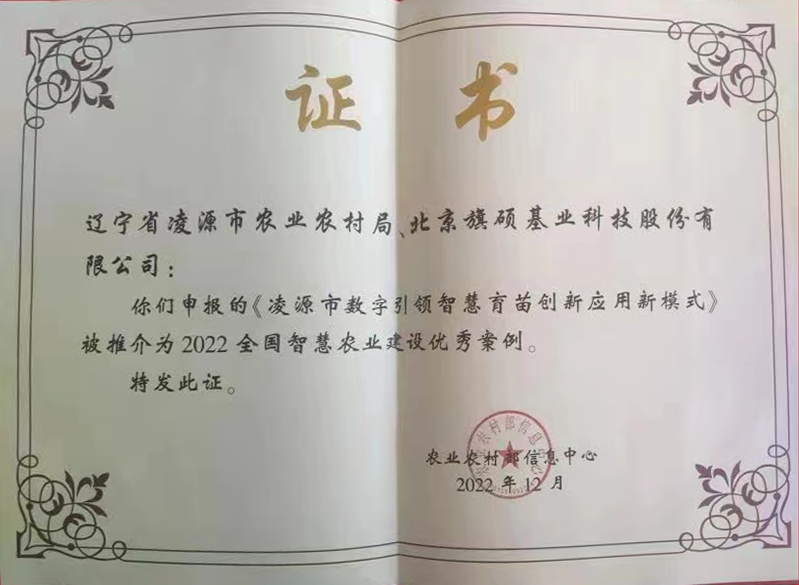 证书
辽宁省凌源市农业农村局、北京旗硕基业科技股份有
限公司：
你们申报的《凌源市数字引领智慧育苗创新应用新模式》
被推介为2022全国智慧农业建设优秀案例。
特发此证。
农业农村部信息中心
2022年12月